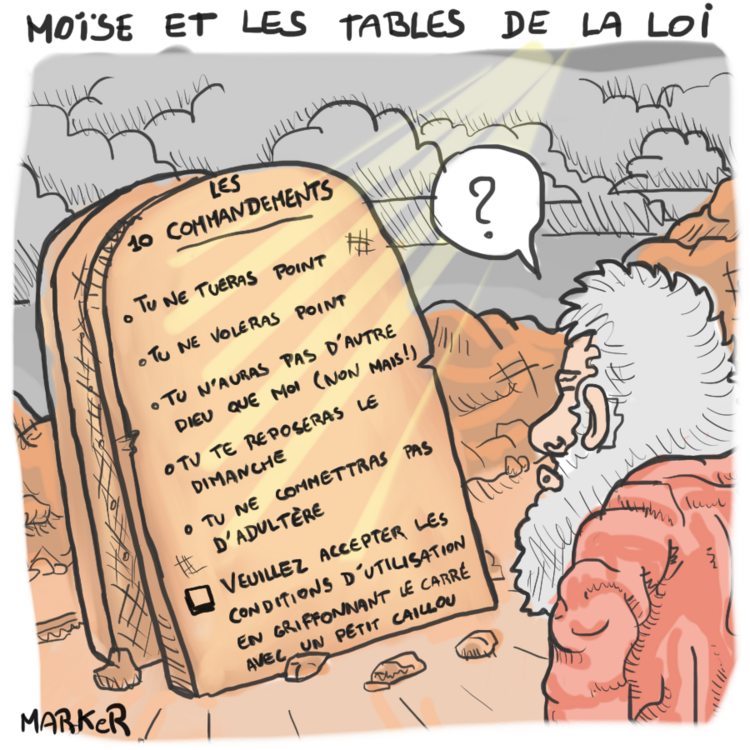 MOÏSE ET LES TABLES DE LA LOI
?
LES
10 COMMANDEMENTS
• TU NE TUERAS POINT
• TU NE VOLERAS POINT
• TU N'AURAS PAS D'AUTRE
DIEU QUE MOI (NON MAIS!)
• TU TE REPOSERAS LE
DIMANCHE
• TU NE COMMETTRAS PAS
D'ADULTÈRE
☐ VEUILLEZ ACCEPTER LES
CONDITIONS D'UTILISATION
EN GRIFFONNANT LE CARRÉ
AVEC UN PETIT CAILLOU
MARKeR